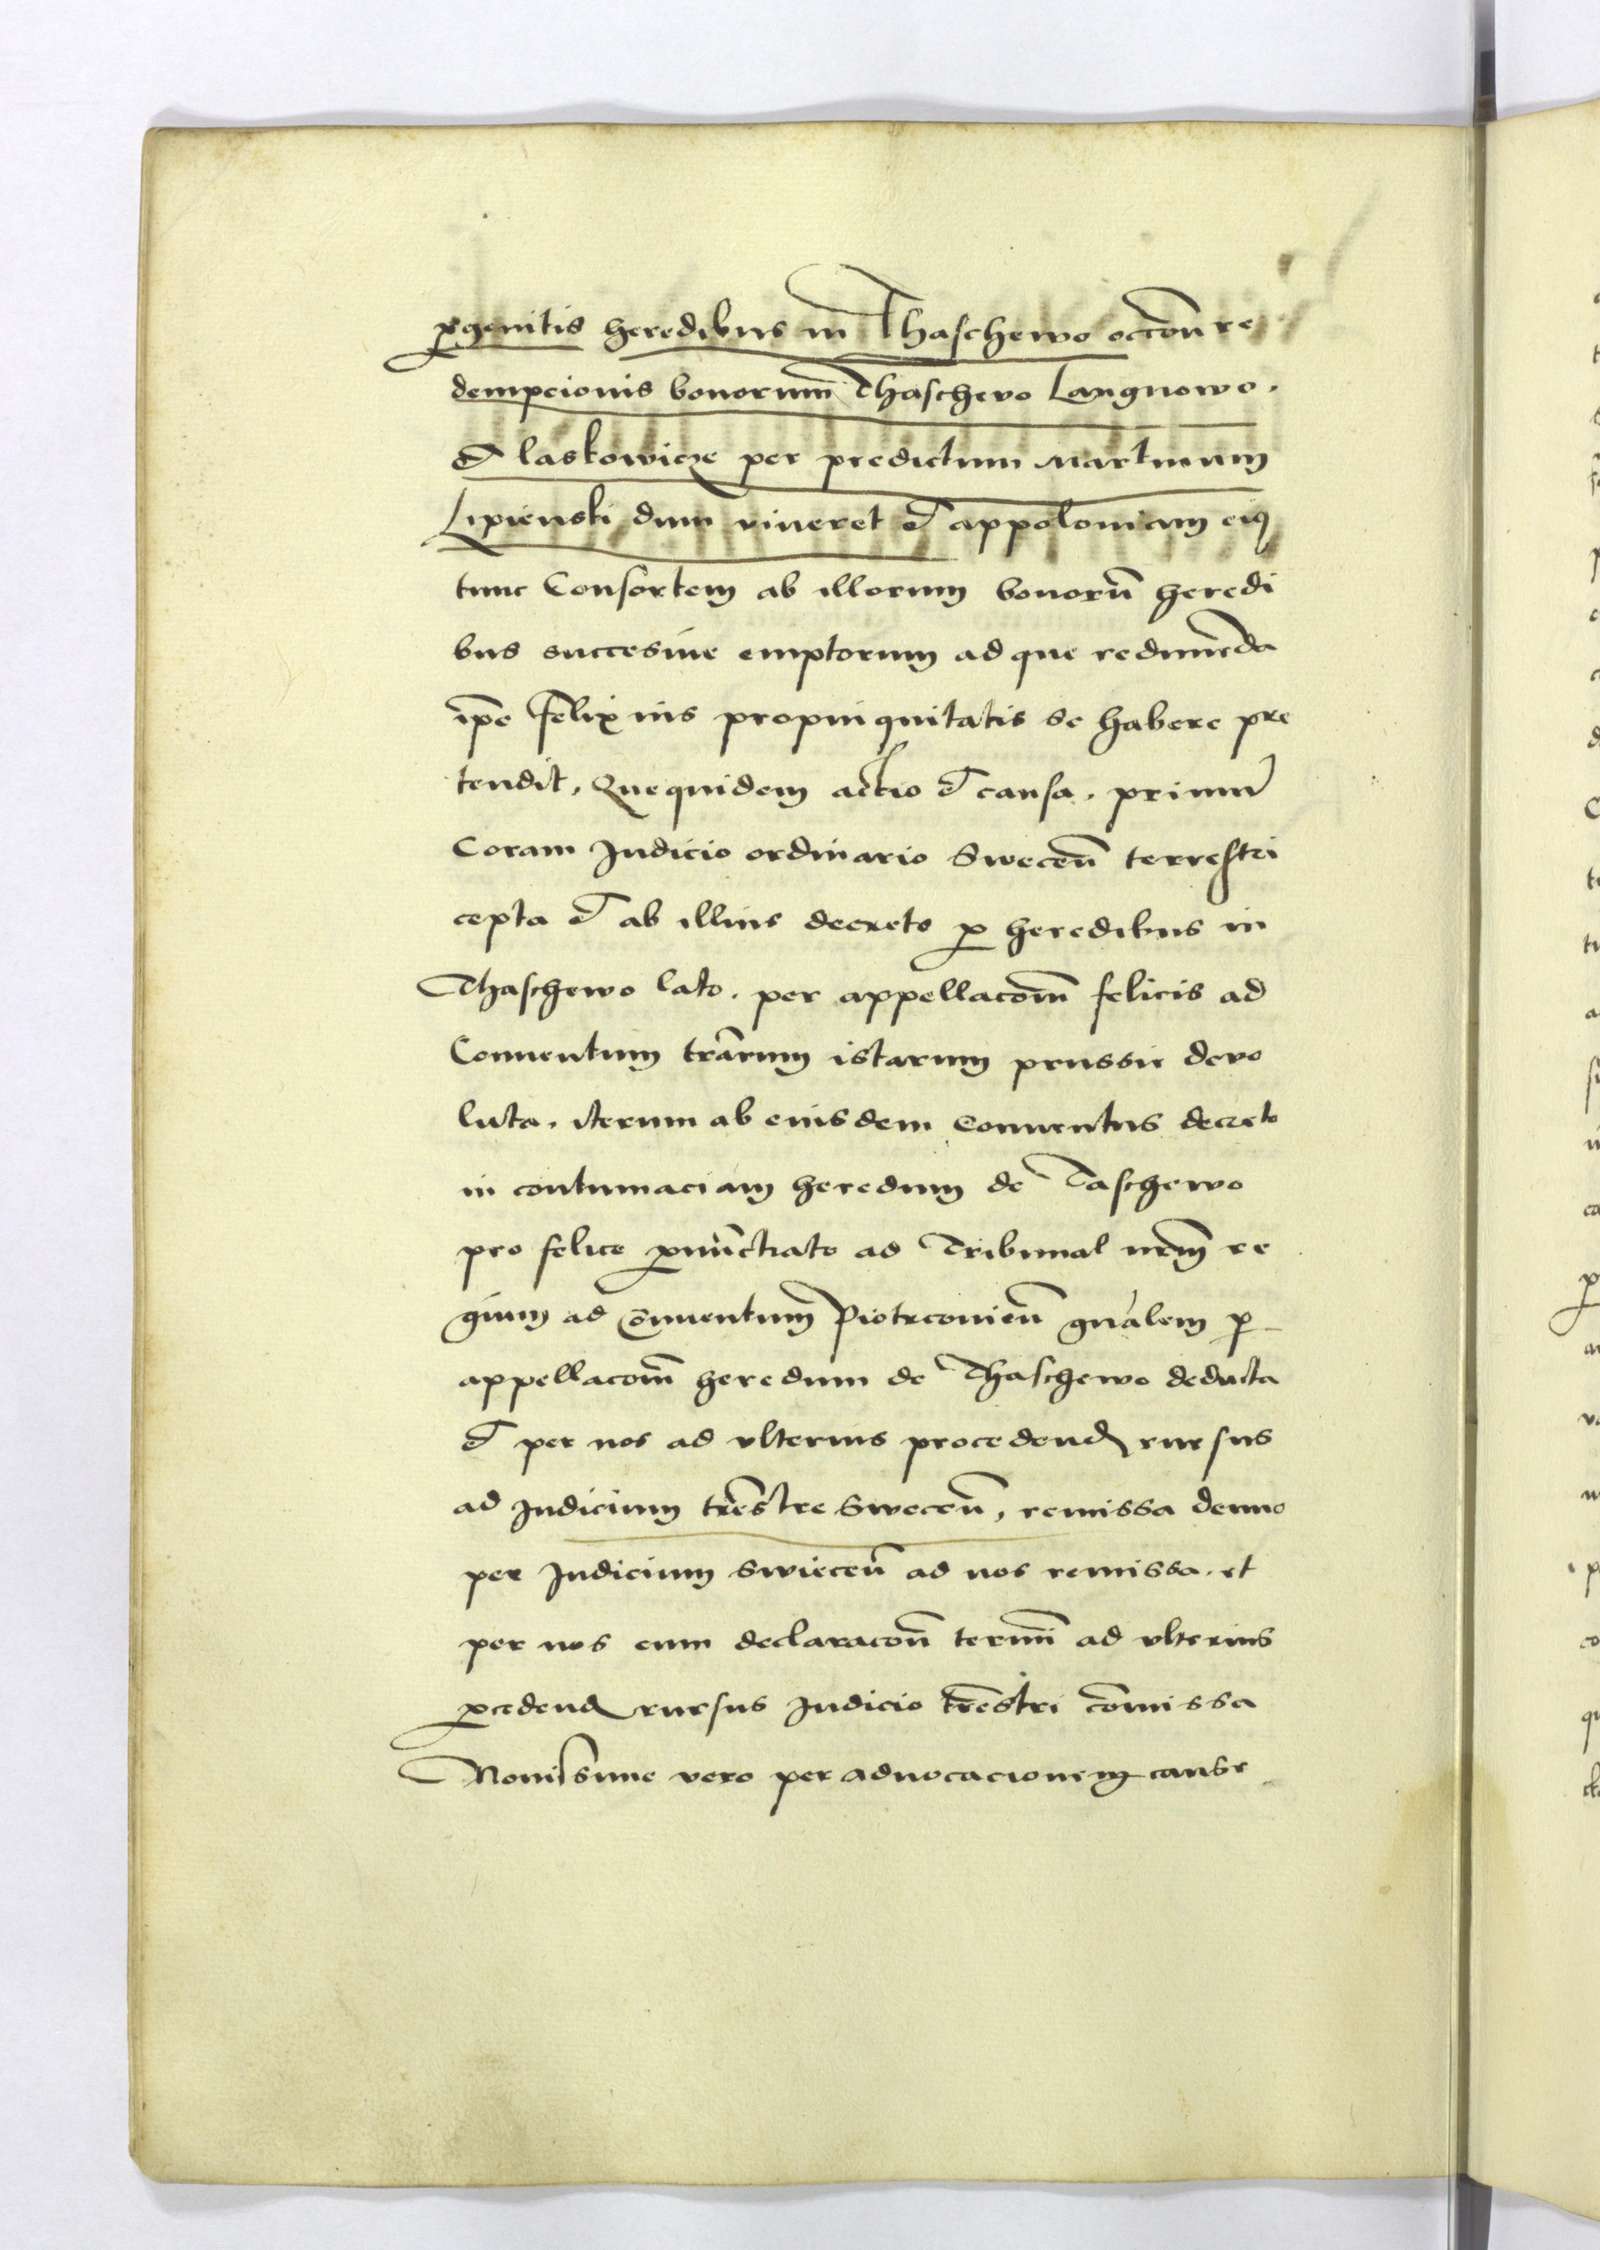 ꝓgenitis heredibus in Thaschewo occōn re
dempcionis bonorum̄ Thaschevo Langnowo.
Et laskowicze per predictum Martinum
Lipienski dum viueret et appoloniam eiꝯ
tunc Consortem ab illorum bonorū heredi
bus succesiue emptorum ad que redimēda
ip̄e Felix ius propinquitatis se habere pre
tendit, Que quidem actio et causa. primū
Coram Judicio ordinario Sweceū terrestri
cepta et ab illius decreto ꝓ heredibus in
Thaschewo lato. per appellacōm̄ felicis ad
Conuentum tr̄arum istarum prussie devo
luta. iterum ab eiusdem Conuentus decreto
in contumaciam heredum de Taschewo
pro felice ꝓnūctiato ad Tribunal nr̄m re
gium ad cōnuentum Piotrconien̄ gn̄alem ꝑ
appellacōm̄ heredum de Thaschewo deducta
et per nos ad vlterius procedend rursus
ad Judicium tr̄estre Swecen̄, remissa denuo
per Judicium Swiecen̄ ad nos remissa. et
per nos cum declaracōn̄ termī ad vlterius
ꝓcedend rursus Judicio tr̄estri cōmissa
Nouissime vero per aduocacionem cause